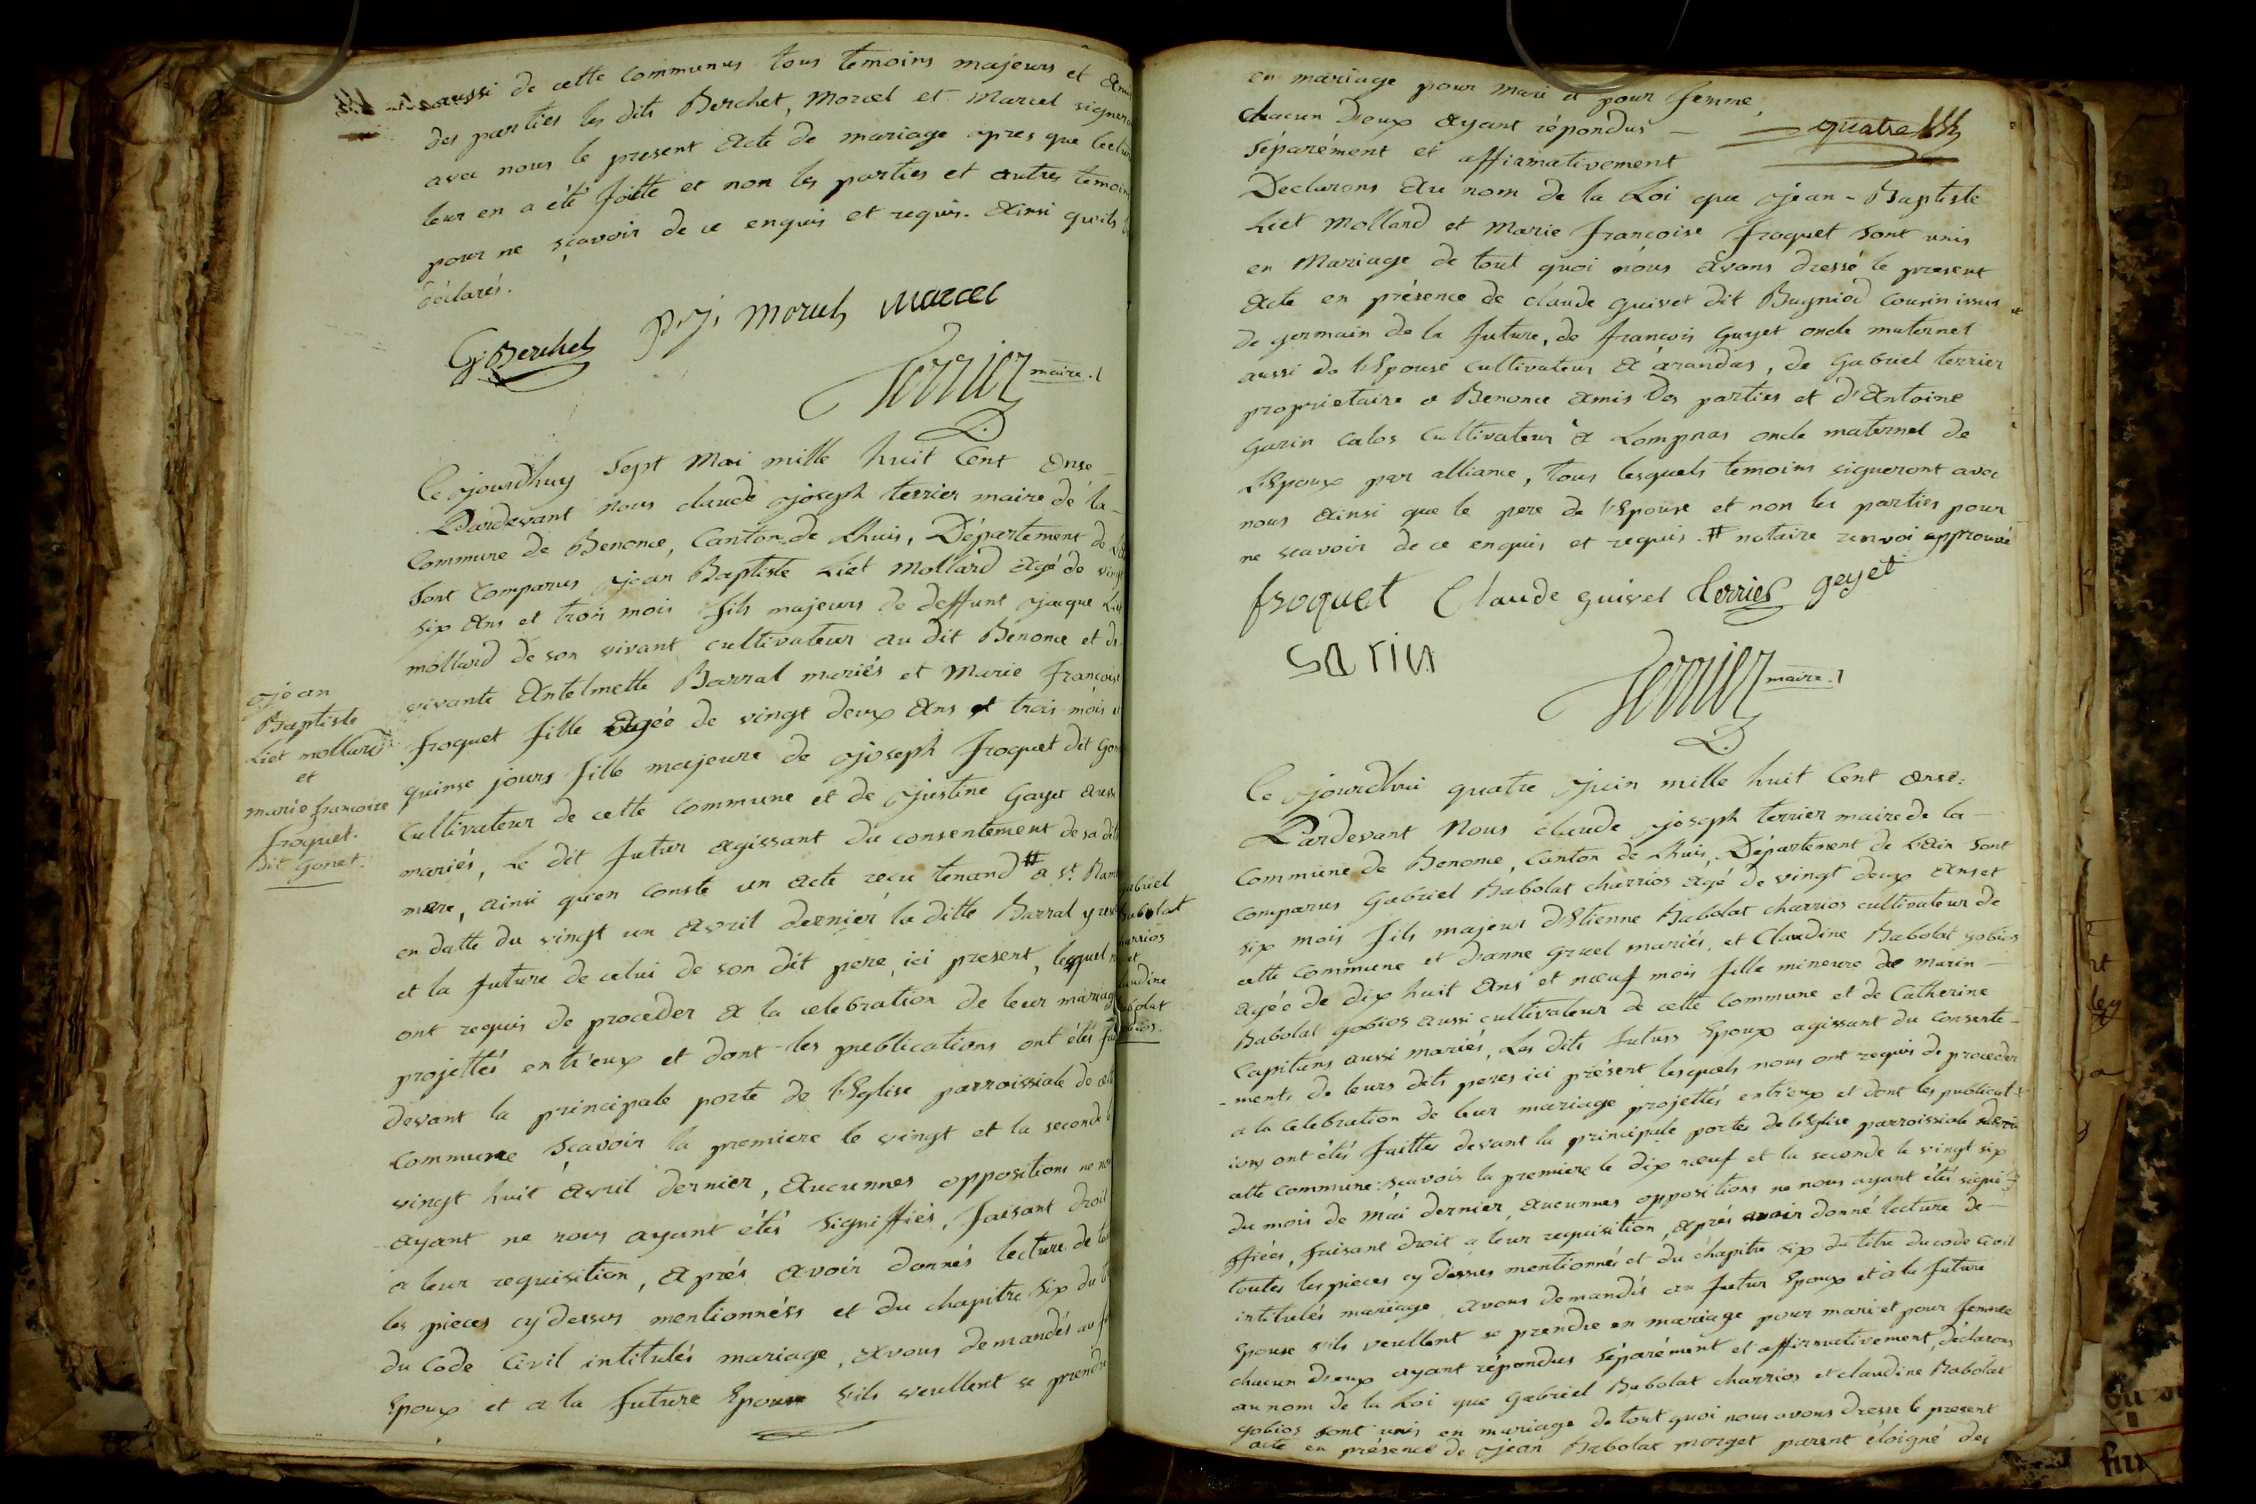 aussi de cette communus tous temoins majeurs et amis
des parties les dits Berchet, Morcel et Marcel signeront
avec nous le present acte de mariage apres que lecture
leur en a été faitte et non les parties et autres temoins
pour ne sçavoir de ce enquis et requis. Ainsi qu'ils
déclarés.
G. Berchet Morcel Marcel
Terrier maire
Ce jourdhuy Sept Mai mille huit Cent Onse
Pardevant nous claude joseph terrier maire de la
Commune de Benonce, Canton de Lhuis, Département de
Sont Comparus jean Baptiste Liet Mollard agé de vingt
six ans et trois mois fils majeurs de deffunt jaque Liet
mollard de son vivant cultivateur au dit Benonce et de
vivante Antelmette Barral mariés et Marie françoise
froquet fille agée de vingt deux ans et trois mois
quinse jours fille majeure de joseph froquet dit
Cultivateur de cette commune et de justine Gayet aussi
mariés, Le dit futur agissant du consentement de sa
mere, ainsi qu'en conste un acte recu tenand # a st. Ram
en datte du vingt un avril dernier la ditte Barral y
et la future de celui de son dit pere, ici present, lesquel
ont requis de proceder a la celebration de leur mariage
projettés entr'eux et dont les publications ont étés
devant la principale porte de l'Eglise parroissiale de cette
Commune sçavoir la premiere le vingt et la seconde
vingt huit avril dernier, Aucunnes oppositions ne
ayant ne nous ayant étés signiffiés, faisant droit
a leur requisition, après avoir donnés lecture de
les pieces cy dessus mentionnéss et du chapitre six du
du Code Civil intitulés mariage, avons demandés au
Epoux et a la future Epouse s'ils veullent se prendre
jean
Baptiste
Liet mollard
et
marie francoise
froquet.
dit gonet.
en mariage pour mari et pour femme,
chacun Deux ayant répondus —
Séparément et affirmativement
quatre
Declarons Au nom de la Loi que jean-Baptiste
Liet Mollard et Marie françoise froquet sont unis
en Mariage de tout quoi nous avons dressé le present
Acte en présence de claude guivet dit Bugniod cousin issus
de germain de la future, de francois guyet oncle maternel
aussi de l'Epouse cultivateur a arandas, de Gabriel terrier
proprietaire a Benonce amis des parties et d'Antoine
garin calos cultivateur a Lompnas oncle maternel de
L'Epoux par alliance, tous lesquels temoins signeront avec
nous ainsi que le pere de l'Epouse et non les parties pour
ne scavoir de ce enquis et requis. # notaire renvoi approuvé
froquet Claude guivet terrier geyet
garin
Terrier maire
Ce jourdhui quatre juin mille huit Cent onse:
Pardevant Nous claude joseph terrier maire de la —
Commune de Benonce, Canton de Lhuis, Département de L'Ain Sont
Comparus Gabriel Babolat charrios agé de vingt deux ans et
six mois fils majeur d'Etienne Babolat charrios cultivateur de
cette Commune et d'anne gruel mariés, et Claudine Babolat gobios
agée de dix huit ans et nœuf mois fille mineure de marin —
Babolat gobios aussi cultivateur de cette Commune et de Catherine
Capitans aussi mariés, Les dits futurs Epoux agissant du consente-
-ments de leurs dits peres ici présent lesquels nous ont requis de proceder
a la celebration de leur mariage projettés entr'eux et dont les publicat
ions ont étés faittes devant la principale portes de l'Eglise parroissiale de
cette commune: scavoir la premiere le dix nœuf et la seconde le vingt six
du mois de Mai dernier, aucunnes oppositions ne nous ayant étés signi-
ffiées, faisant droit a leur requisition, après avoir donné lecture de —
toutes les pieces cy dessus mentionnés et du chapitre six du titre du code civil
intitulés mariage, avons demandés au futur Epoux et a la future
Epouse s'ils veullent se prendre en mariage pour mari et pour femme
chacun d'eux ayant répondus séparément et affirmativement, déclarons
au nom de la Loi que Gabriel Babolat charrios et claudine Babolat
gobios sont unis en mariage de tout quoi nous avons dresse le present
acte en présence de jean Babolat morget parent éloigné des